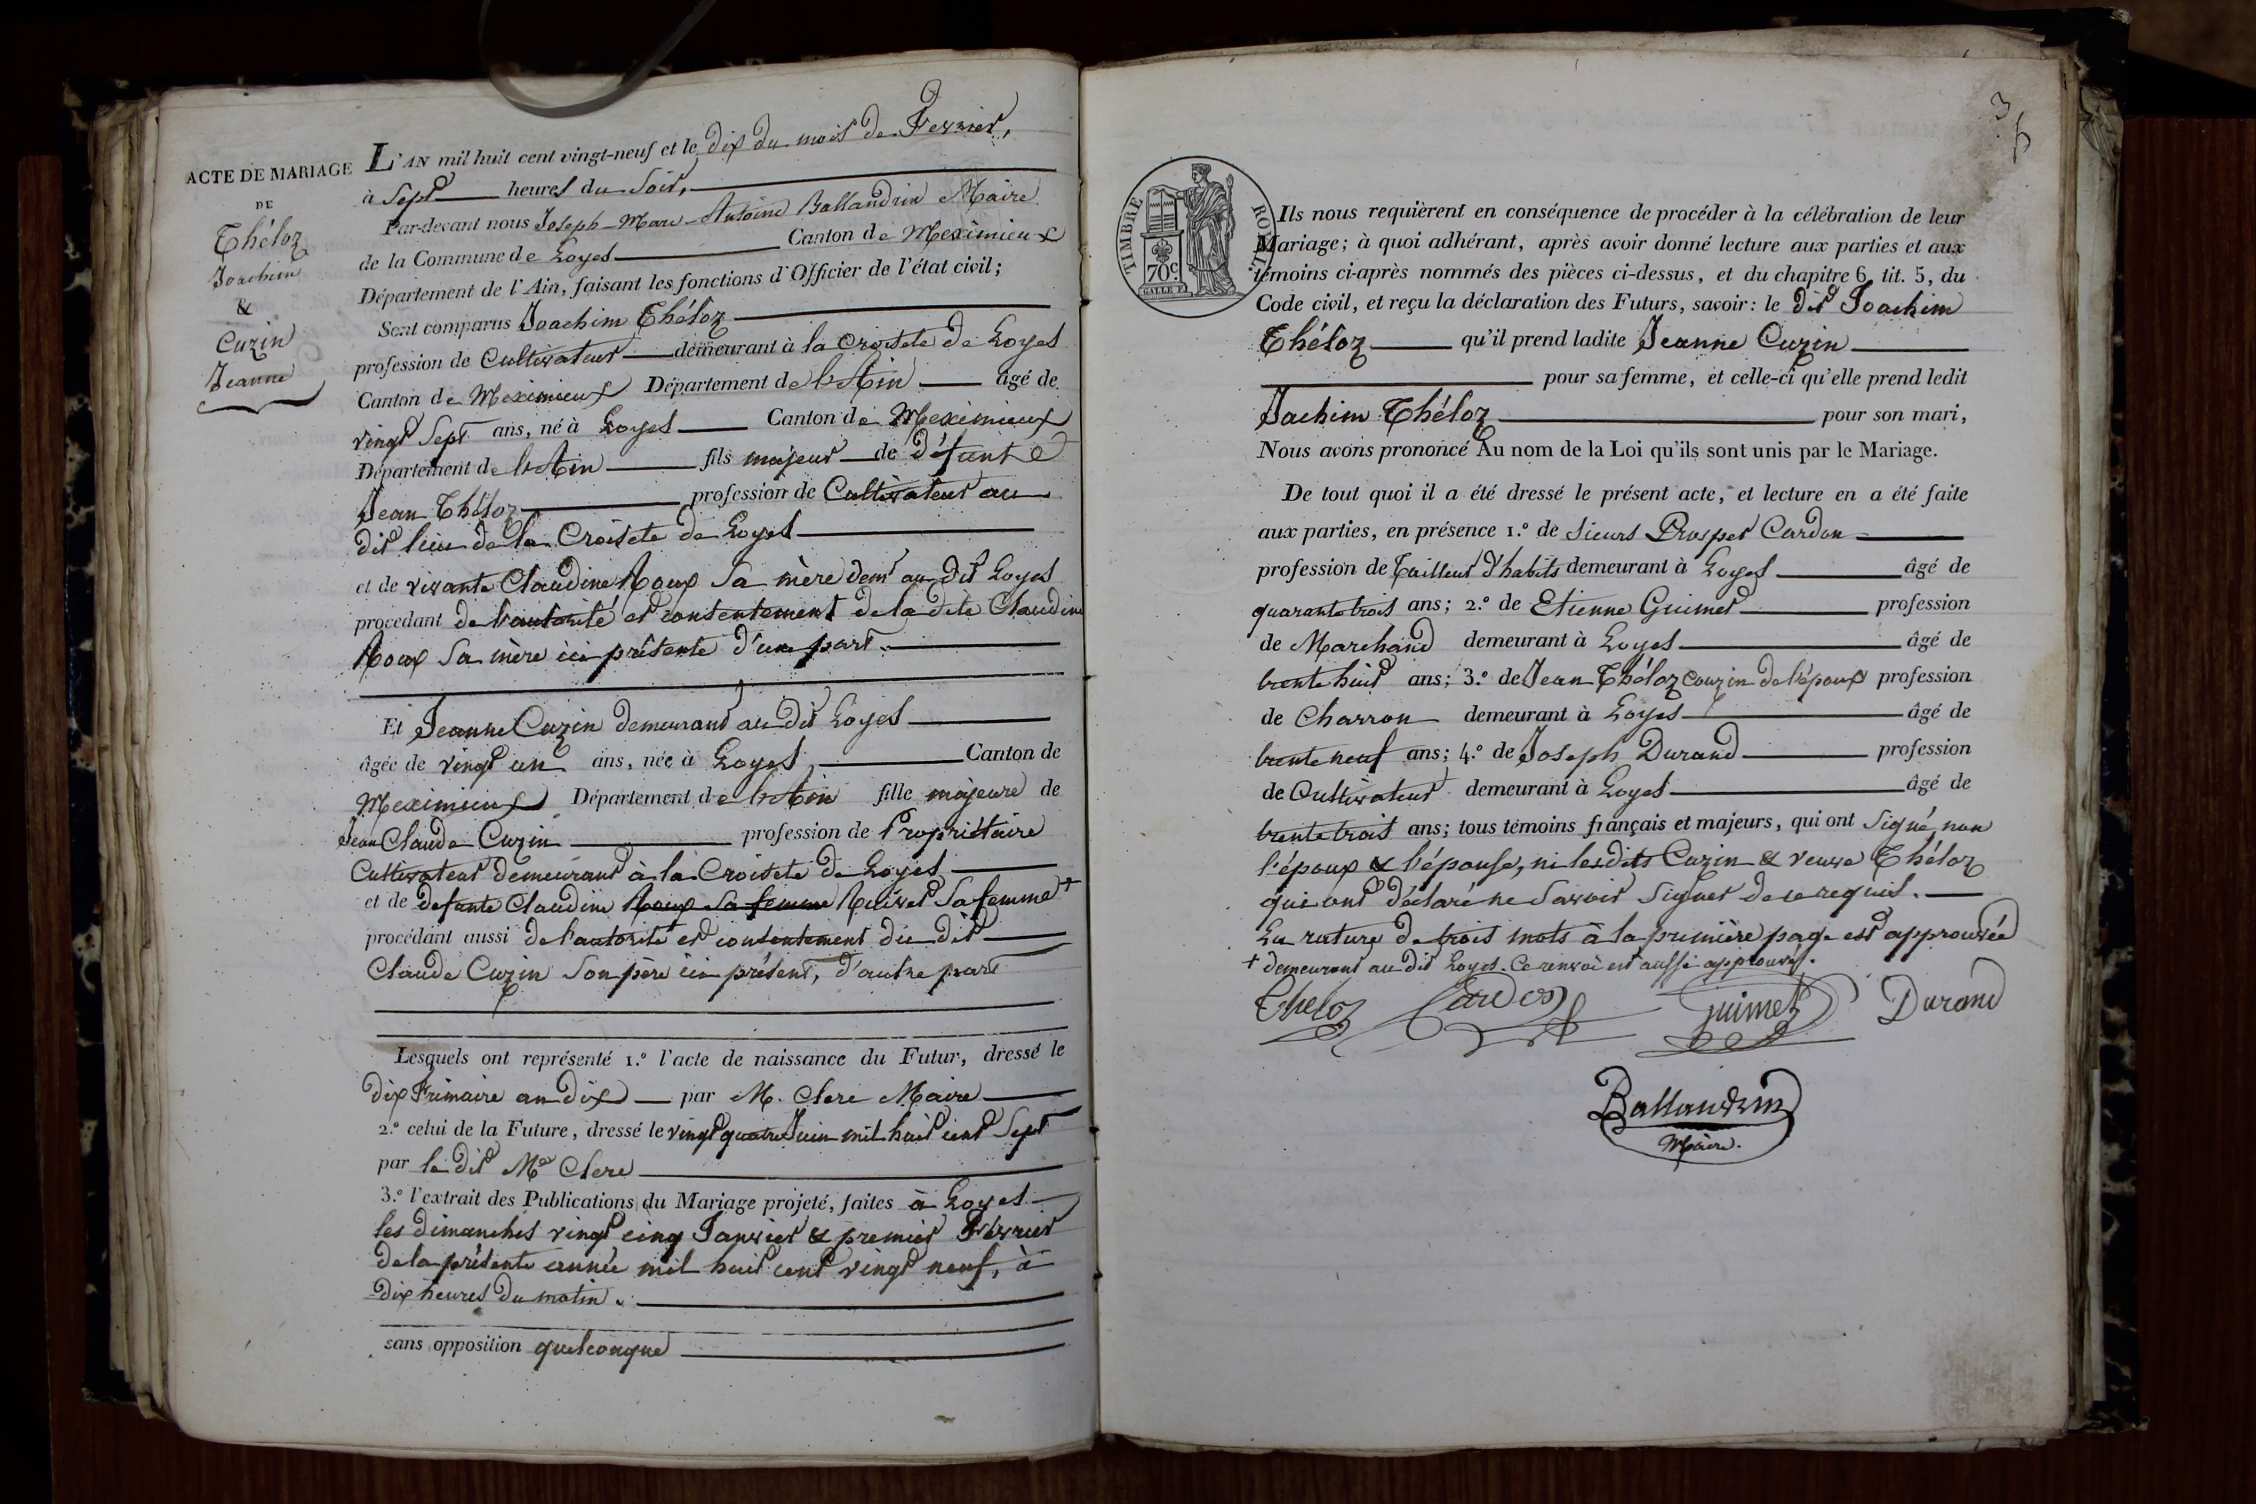 ACTE DE MARIAGE
DE
Théloz
Joachim
&
Cuzin
Jeanne
L'AN mil huit cent vingt-neuf et le dix du mois de Fevrier,
à Sept heures du Soir,
Par-devant nous Joseph-Marc-Antoine Ballandrin Maire
de la Commune de Loyes Canton de Meximieux
Département de l'Ain, faisant les fonctions d'Officier de l'état civil;
Sont comparus Joachim Théloz
profession de Cultivateur demeurant à la Croisete de Loyes
Canton de Meximieux Département de l'Ain âgé de
vingt Sept ans, né à Loyes Canton de Meximieux
Département de l'Ain fils majeur de défunt
Jean Théloz profession de Cultivateur au
dit lieu de la Croisete de Loyes
et de vivante Claudine Roux Sa mère demt au dit Loyes
procédant de l'autorité et consentement de la dite Claudine
Roux Sa mère ici présente d'une part.
Et Jeanne Cuzin demeurant au dit Loyes
âgée de vingt un ans, née à Loyes, Canton de
Meximieux Département de l'Ain fille majeure de
Jean Claude Cuzin profession de Propriétaire
Cultivateur demeurant à la Croisete de Loyes
et de defunte Claudine Roux Sa femme Rivet Sa femme +
procédant aussi de l'autorité et consentement du dit
Claude Cuzin Son père ici présent, d'autre part
Lesquels ont représenté 1.° l'acte de naissance du Futur, dressé le
dix Frimaire an dix par M. Clerc Maire
2.° celui de la Future, dressé le vingt quatre Juin mil huit cent Sept
par le dit Mr Clerc
3.° l'extrait des Publications du Mariage projeté, faites à Loyes
les dimanches vingt cinq Janvier & premier Février
de la présente année mil huit cent vingt neuf, à
dix heures du matin.
sans opposition quelconque
3
TIMBRE ROYAL
70c
GALLE F.
Ils nous requièrent en conséquence de procéder à la célébration de leur
Mariage; à quoi adhérant, après avoir donné lecture aux parties et aux
témoins ci-après nommés des pièces ci-dessus, et du chapitre 6, tit. 5, du
Code civil, et reçu la déclaration des Futurs, savoir: le dit Joachim
Théloz qu'il prend ladite Jeanne Cuzin
pour sa femme, et celle-ci qu'elle prend ledit
Jachim Théloz pour son mari,
Nous avons prononcé Au nom de la Loi qu'ils sont unis par le Mariage.
De tout quoi il a été dressé le présent acte, et lecture en a été faite
aux parties, en présence 1.° de Sieurs Prosper Cardon
profession de Tailleur d'habits demeurant à Loyes âgé de
quarante trois ans; 2.° de Etienne Guimet profession
de Marchand demeurant à Loyes âgé de
trente huit ans; 3.° de Jean Théloz couzin de l'époux profession
de Charron demeurant à Loyes âgé de
trente neuf ans; 4.° de Joseph Durand profession
de Cultivateur demeurant à Loyes âgé de
trente trois ans; tous témoins français et majeurs, qui ont Signé, non
l'époux & l'épouse, ni lesdits Cuzin & veuve Théloz
qui ont déclaré ne Savoir Signer de ce requis.
La rature de trois mots à la première page est approuvée
+ demeurant au dit Loyes. Ce renvoi est aussi approuvé.
Theloz Cardon Guimet Durand
Ballandrin
Maire.